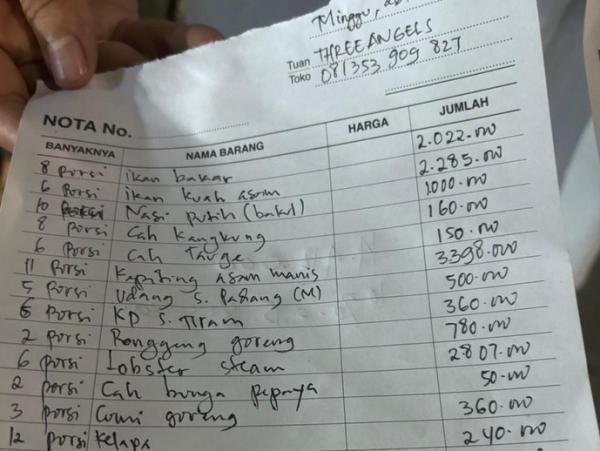 Minggu,
Tuan THREEANGELS
Toko 081353 909 827
NOTA No.
BANYAKNYA NAMA BARANG HARGA JUMLAH
8 porsi ikan bakar 2.022.000
6 porsi ikan kuah asam 2.285.000
10 Nasi putih (bakul) 1000.000
8 porsi Cah Kangkung 160.000
6 porsi Cah Tauge 150.000
11 porsi Kepiting asam manis 3398.000
5 porsi Udang s. Padang (M) 500.000
6 porsi KP s. Tiram 360.000
2 porsi Ronggeng goreng 780.000
6 porsi Lobster steam 2807.000
2 porsi Cah bunga pepaya 50.000
3 porsi Cumi goreng 360.000
12 porsi Kelapa 240.000